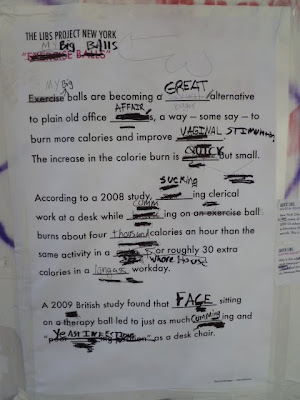 THE LIBS PROJECT NEW YORK
MY Big BALLS
"EXERCISE BALLS"
MY Big GREAT
Exercise balls are becoming a alternative
to plain old office AFFAIR s, a way — some say — to
burn more calories and improve VAGINAL STIMULI
The increase in the calorie burn is QUICK but small.
According to a 2008 study, SUCKing ing clerical
work at a desk while CUMM ing on an exercise ball
burns about four thousand calories an hour than the
same activity in a Whore House or roughly 30 extra
calories in a workday.
A 2009 British study found that FACE sitting
on a therapy ball led to just as much CUMMING ing and
"YEAST INFECTIONS" as a desk chair.